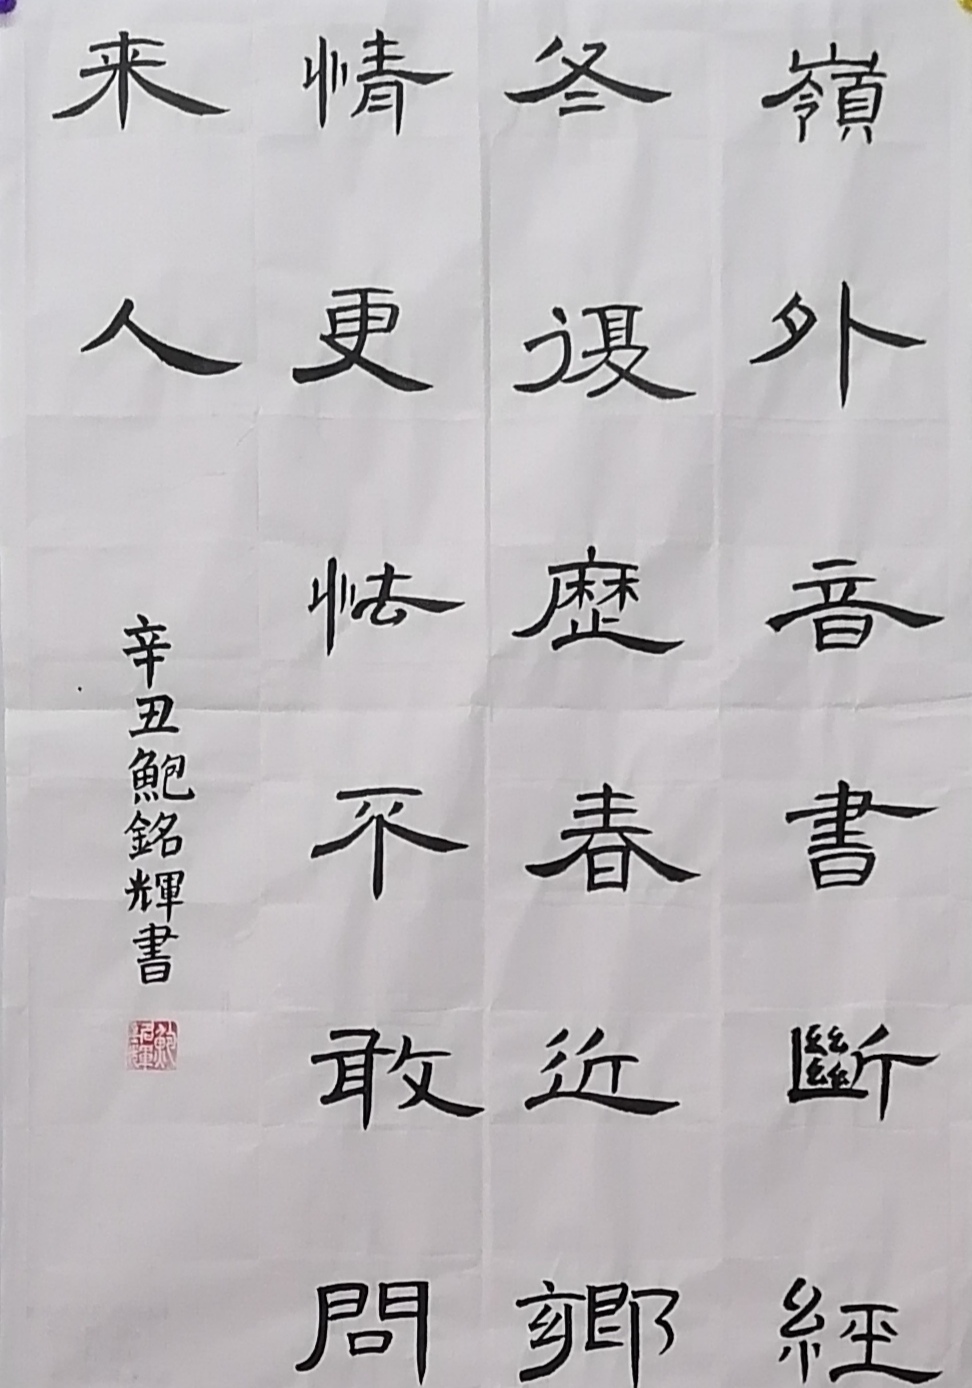 嶺外音書斷經
冬復歷春近鄉
情更怯不敢問
来人
辛丑鮑銘輝書